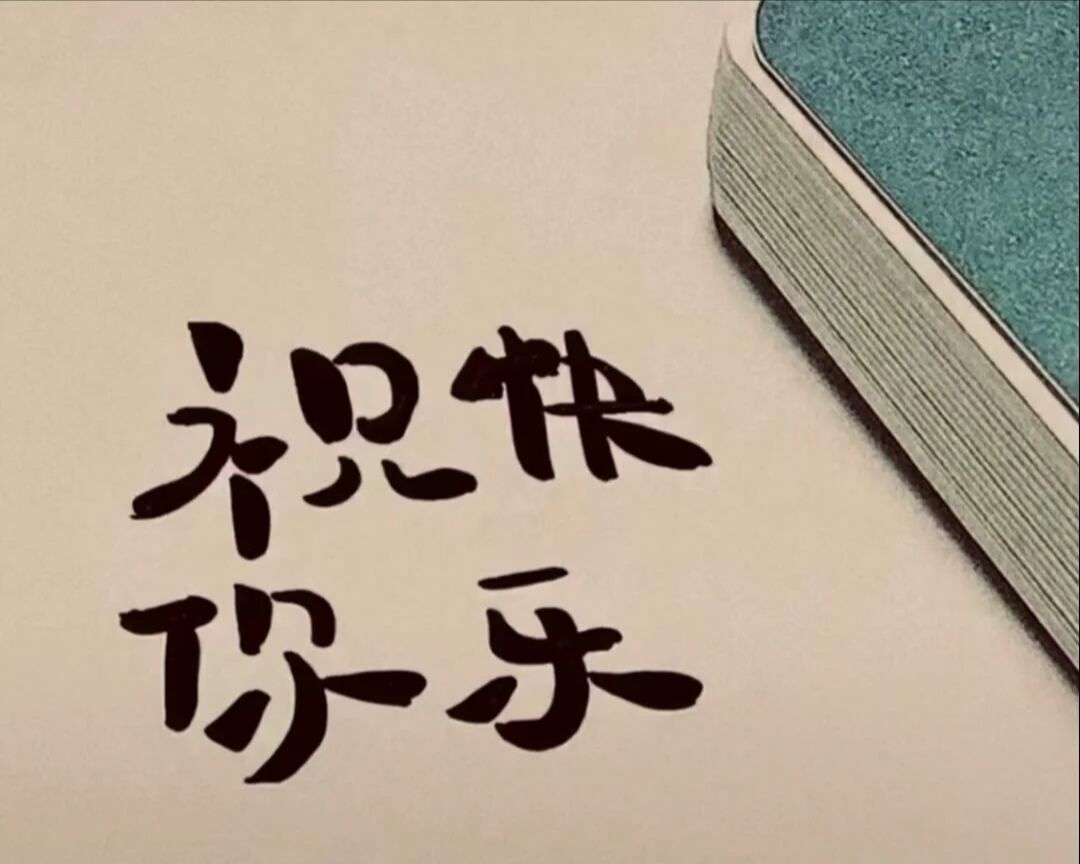 祝你
快乐